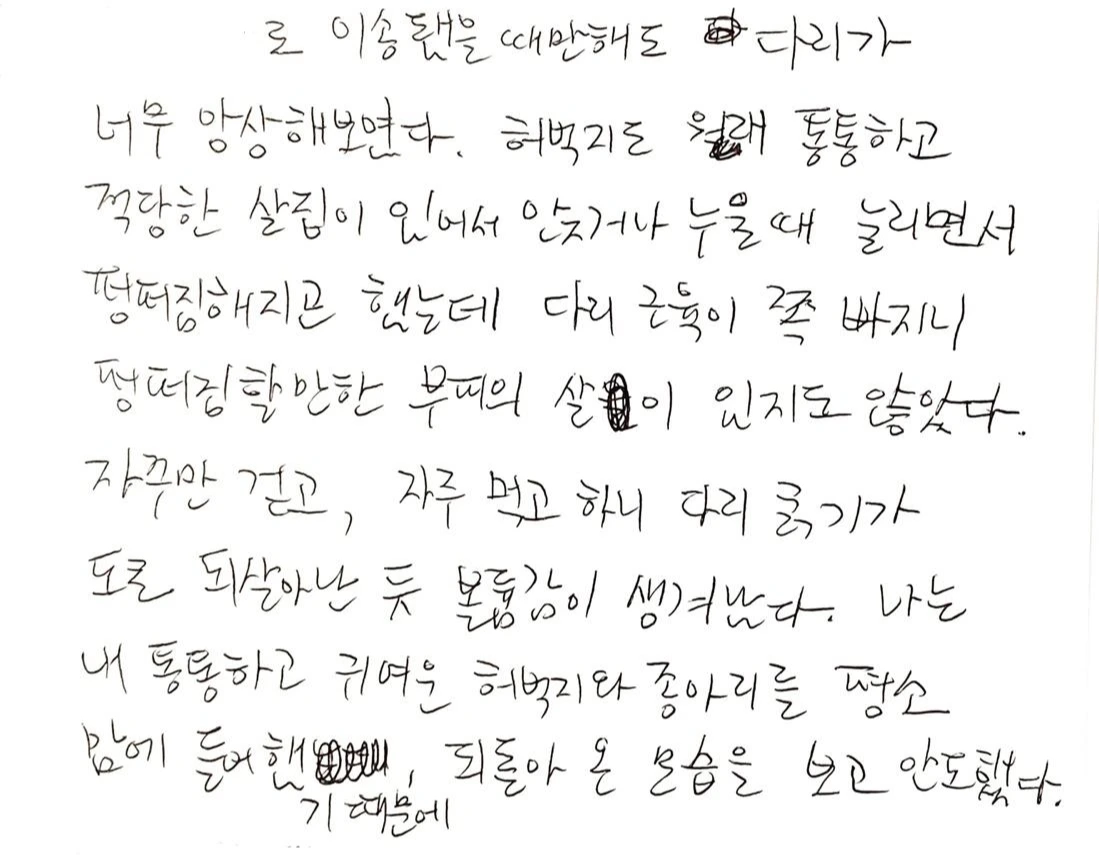 로 이송됐을 때만해도 다리가
너무 앙상해보였다. 허벅지도 원래 통통하고
적당한 살집이 있어서 앉거나 누울 때 눌리면서
펑퍼짐해지곤 했는데 다리 근육이 쪽 빠지니
펑퍼짐할 만한 부피의 살이 있지도 않았다.
자꾸만 걷고, 자주 먹고 하니 다리 굵기가
도로 되살아난 듯 볼륨감이 생겨났다. 나는
내 통통하고 귀여운 허벅지와 종아리를 평소
맘에 들어했기 때문에, 되돌아 온 모습을 보고 안도했다.